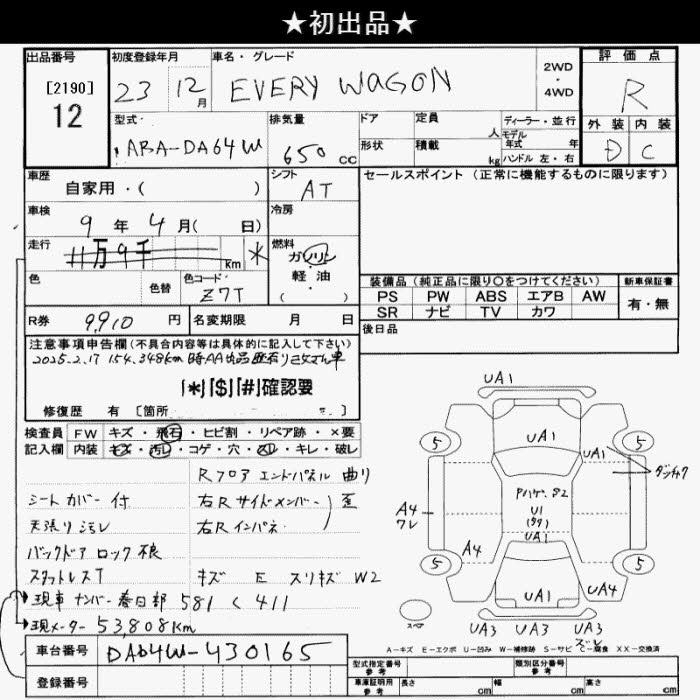 ★初出品★
出品番号 初度登録年月 車名・グレード 評価点
[2190] 12 23 12月 EVERY WAGON 2WD・4WD R
型式・ 排気量 ドア 定員 人 ディーラー・並行 外装 内装
ABA-DA64W 650 cc 形状 積載 kg モデル年式 年 ハンドル 左・右 D C
車歴 自家用・( ) シフト AT セールスポイント(正常に機能するものに限ります)
車検 9年4月( 日) 冷房
走行 11万9千 km * 燃料 ガソリン・軽油・( )
色 色替 色コード Z7T 装備品(純正品に限り○をつけてください) 新車保証書
PS PW ABS エアB AW 有・無
SR ナビ TV カワ
R券 9,910円 名変期限 月 日 後日品
注意事項申告欄(不具合内容等は具体的に記入して下さい)
2025.2.17 154,348km 時AA出品
「*」「$」「#」確認要
修復歴 有 [箇所 ]
検査員 FW キズ・飛石・ヒビ割・リペア跡・×要
記入欄 内装 キズ・汚レ・コゲ・穴・スレ・キレ・破レ
Rフロア エンドパネル 曲り
シートカバー付 右Rサイドメンバー 歪
天張り汚レ 右Rインパネ
バックドア ロック不良
スタットレスT キズ E スリキズ W2
現車 ナンバー 春日部 581 く 411
現メーター 53,808km
車台番号 DA64W-430165
登録番号
UA1
5 5
UA1 UA1 ダッチ7
A4 ワレ
U1 (99)
UA1
A4
5 5
UA1 UA4
スペア
UA3 UA3 UA3
A-キズ E-エクボ U-凹み W-補修跡 S-サビ C-腐食 XX-交換済
型式指定番号 参考 類別区分番号 参考
車庫証明用 参考 長さ cm 幅 cm 高さ cm